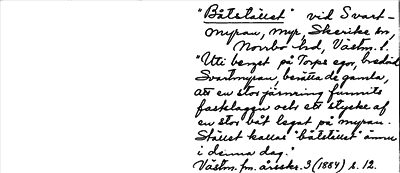 "Båtstället" vid Svart-
myran, myr, Skerike sn,
Norrbo hd, Västm. l.
"Uti berget på Torps egor, bredvid
Svartmyran, berätta de gamla,
att en stor järnring funnits
fastslagen och ett stycke af
en stor båt legat på myran.
Stället kallas "båtstället" ännu
i denna dag."
Västm. fm. årsskr. 3 (1884) s. 12.